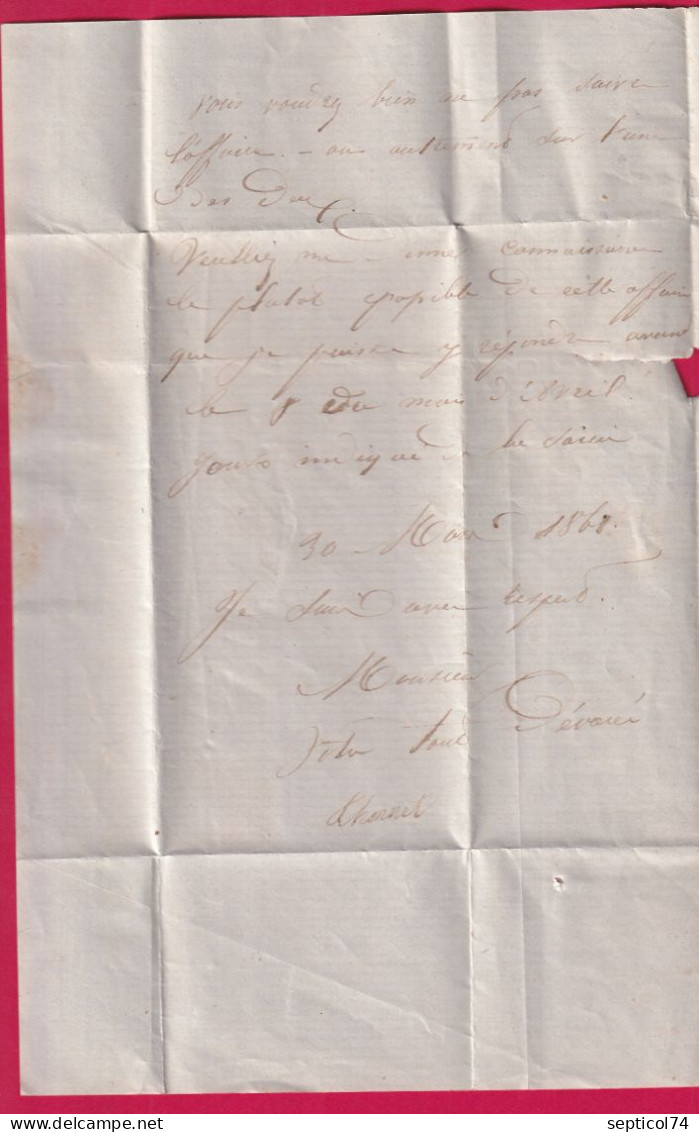 vous voudrez bien ne pas suivre
l'affaire. – ou autrement sur l'une
des deux
Veuillez me connaissance
le plutot possible de cette affaire
que je puisse y répondre avant
le 8 du mois d'Avril
jours indiqué la saisie
30 Mars 1868.
Je suis avec respect.
Monsieur
Votre tout Dévoué
septicol74
www.delcampe.net